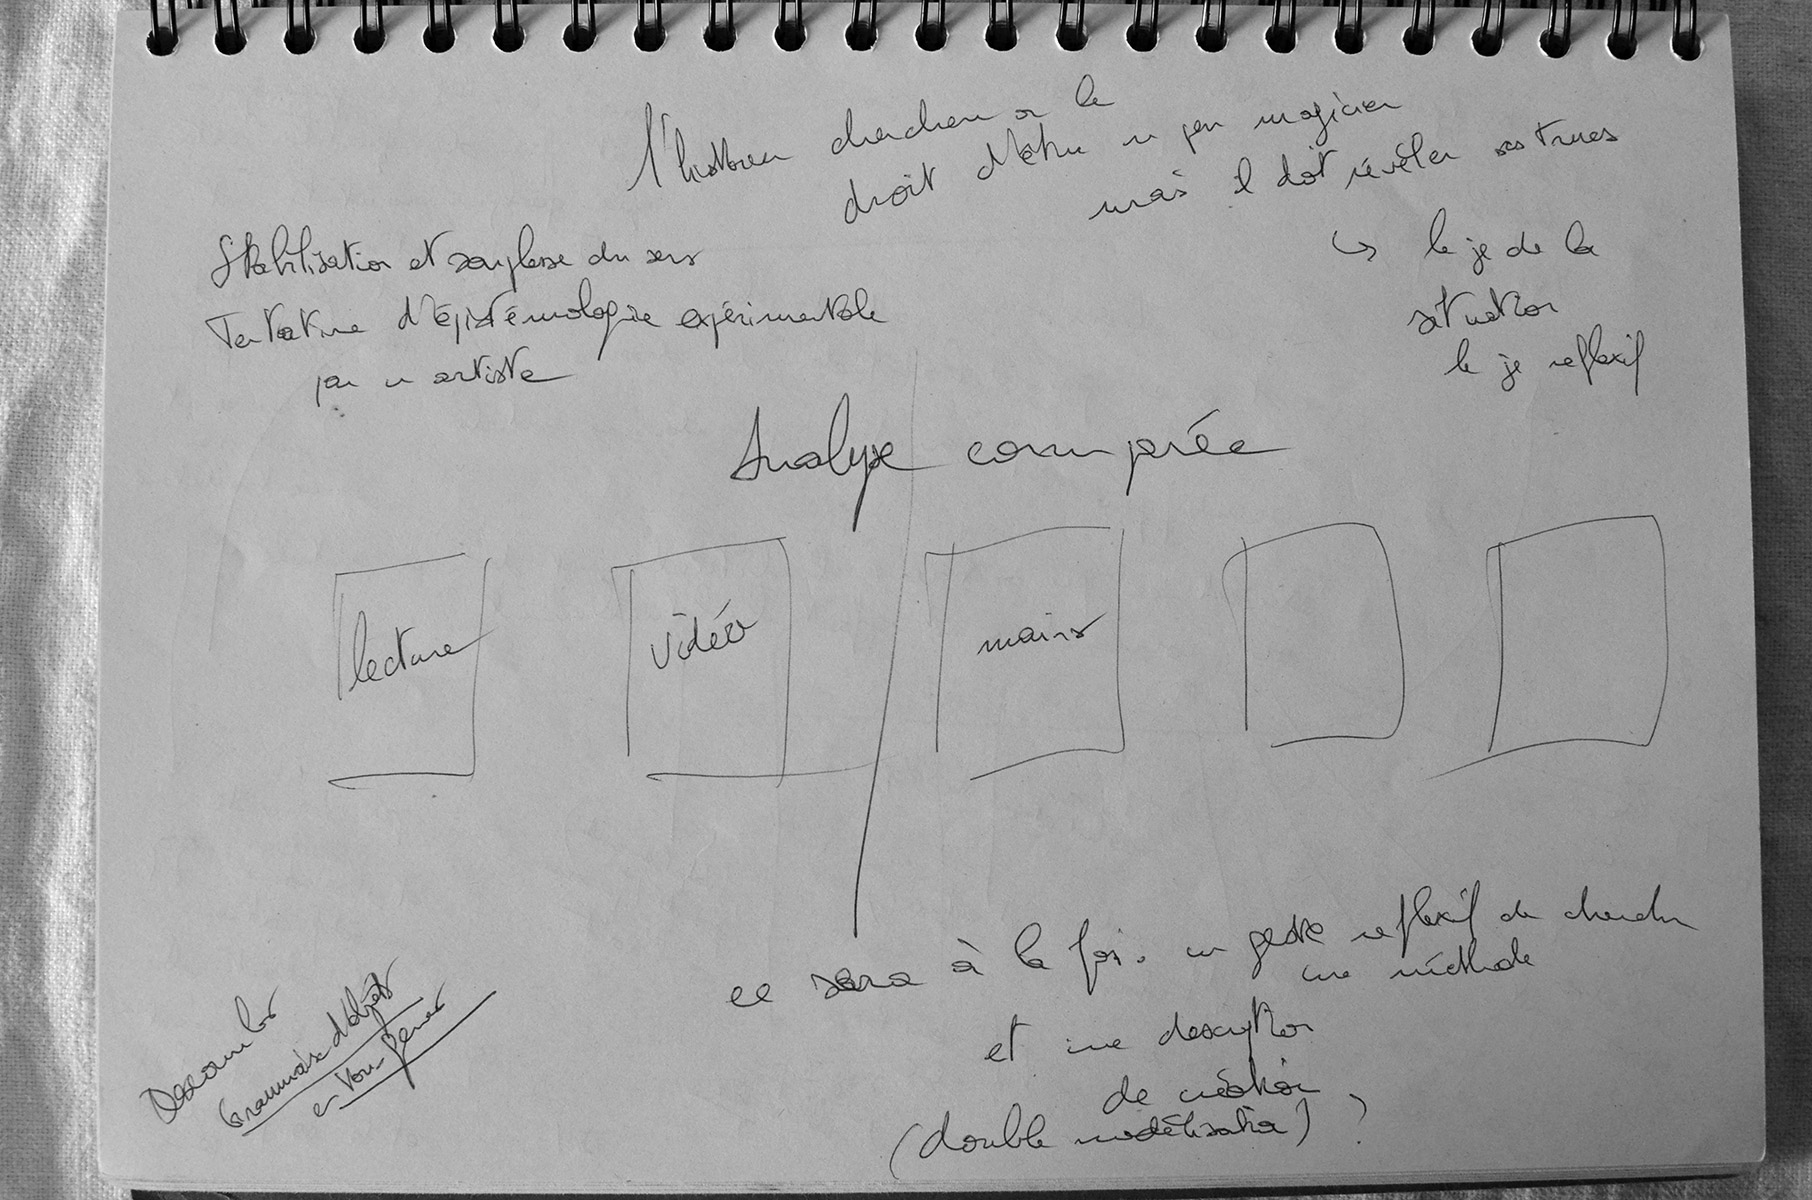 l'historien chercheur a le
droit d'être un peu magicien
mais il doit révéler ses trucs
↪ le je de la
situation
le je reflexif
Stabilisation et souplesse du sens
Tentative d'épistémologie expérimentale
par un artiste
Analyse comprée
lecture
vidéo
mains
ce sera à la fois. un geste reflexif de chercher
une méthode
et une description
de création
(double modélisation) ?
Descombes
Grammaire d'objets
en tous genres